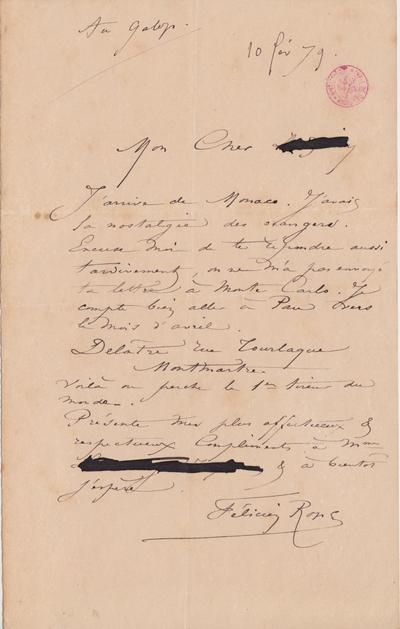 Au galop.
10 fév 79.
Mon Cher
J'arrive de Monaco. J'avais
la nostalgie des orangers.
Excuse moi de te répondre aussi
tardivement, on ne m'a pas envoyé
ta lettre à Monte Carlo. Je
compte bien aller à Pau vers
le mois d'avril.
Delatre rue Tourlaque
Montmartre.
Voilà où perche le 1er tireur du
monde.
Présente mes plus affectueux &
respectueux Compliments à Mme
& à bientôt
j'espère.
Félicien Rops